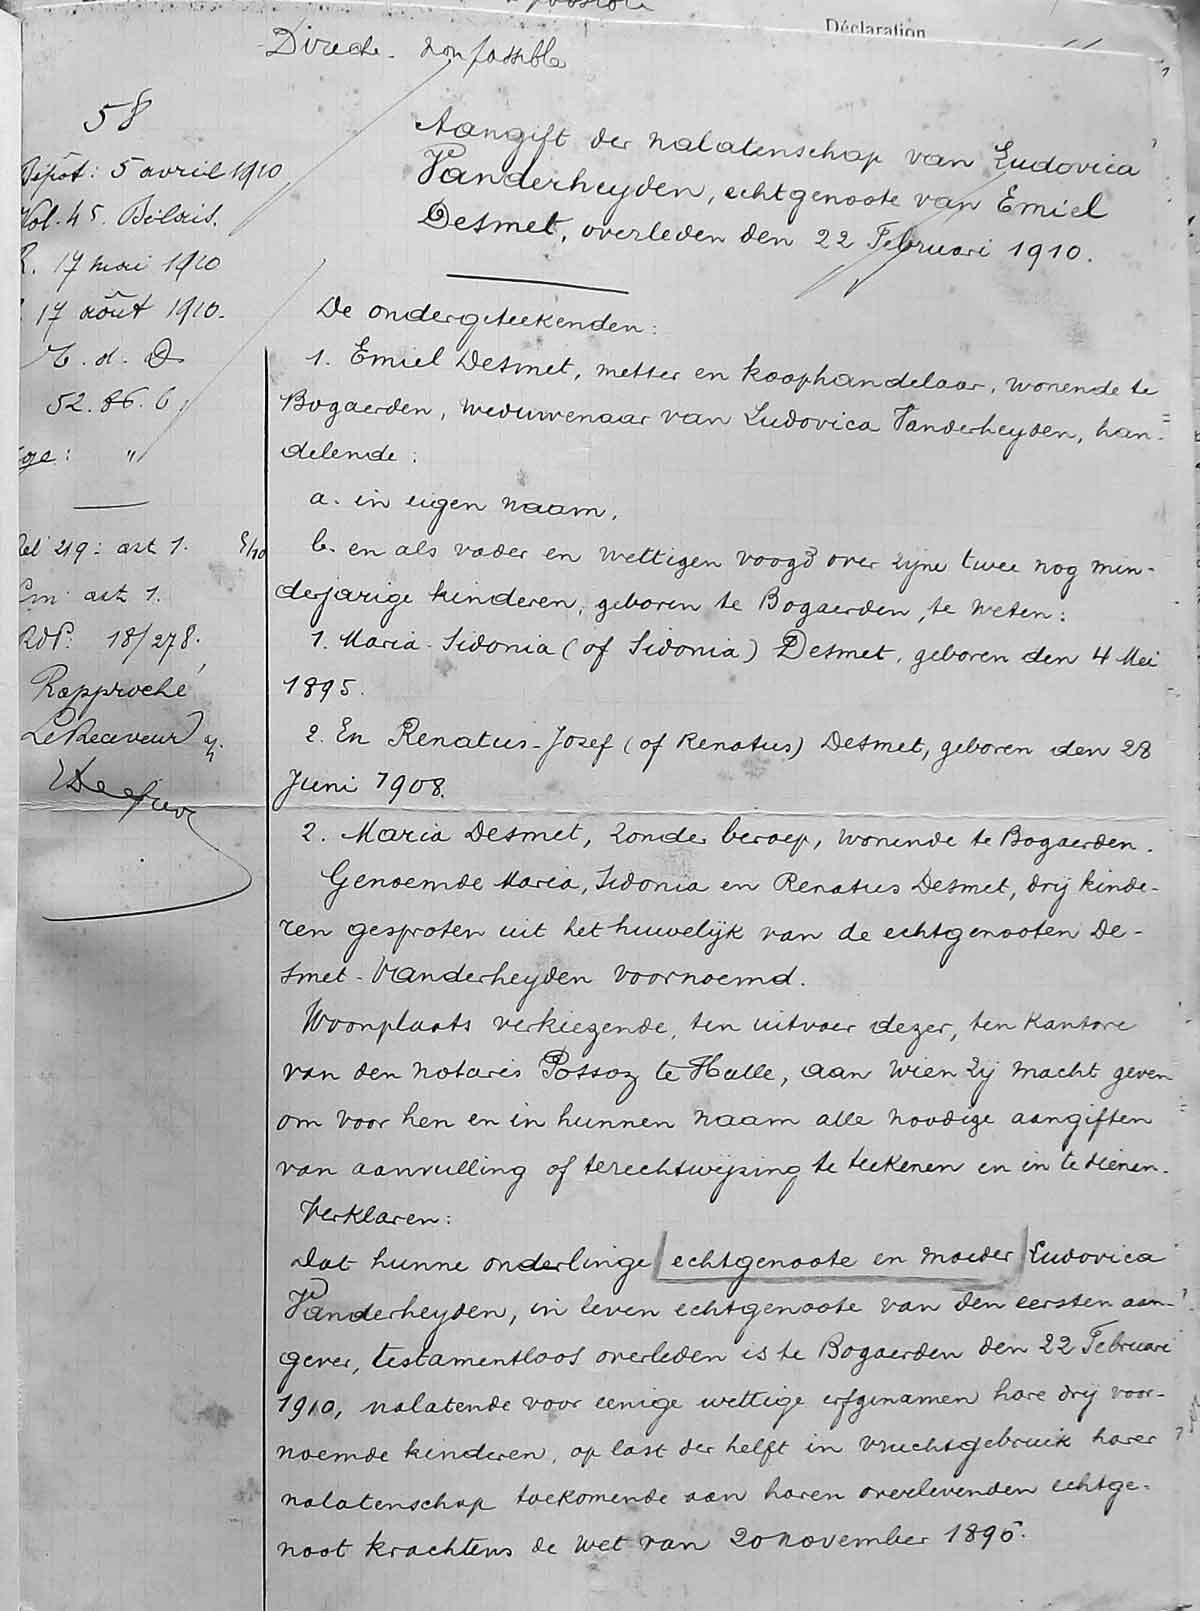 Déclaration
Directe - non passible
58
Dépôt: 5 avril 1910
Vol. 45. Bilois.
17 mai 1910
17 août 1910.
52. 86. 6
219: art 1. 5/10
art 1.
18/278.
Rapproché
Le Receveur
Aangift der nalatenschap van Ludovica
Vanderheyden, echtgenoote van Emiel
Desmet, overleden den 22 Februari 1910.
De ondergeteekenden:
1. Emiel Desmet, metser en koophandelaar, wonende te
Bogaerden, weduwenaar van Ludovica Vanderheyden, han-
delende:
a. in eigen naam,
b. en als vader en wettigen voogd over zijne twee nog min-
derjarige kinderen, geboren te Bogaerden, te weten:
1. Maria-Sidonia (of Sidonia) Desmet, geboren den 4 Mei
1895.
2. En Renatus-Josef (of Renatus) Desmet, geboren den 28
Juni 1908.
2. Maria Desmet, zonder beroep, wonende te Bogaerden.
Genoemde Maria, Sidonia en Renatus Desmet, drij kinde-
ren gesproten uit het huwelijk van de echtgenooten De-
smet-Vanderheyden voornoemd.
Woonplaats verkiezende, ten uitvoer dezer, ten kantore
van den notaris Possoz te Halle, aan wien zij macht geven
om voor hen en in hunnen naam alle noodige aangiften
van aanvulling of terechtwijzing te teekenen en in te dienen.
Verklaren:
Dat hunne onderlinge echtgenoote en moeder Ludovica
Vanderheyden, in leven echtgenoote van den eersten aan-
gever, testamentloos overleden is te Bogaerden den 22 Februari
1910, nalatende voor eenige wettige erfgenamen hare drij voor-
noemde kinderen, op last der helft in vruchtgebruik harer
nalatenschap toekomende aan haren overlevenden echtge-
noot krachtens de wet van 20 november 1896.